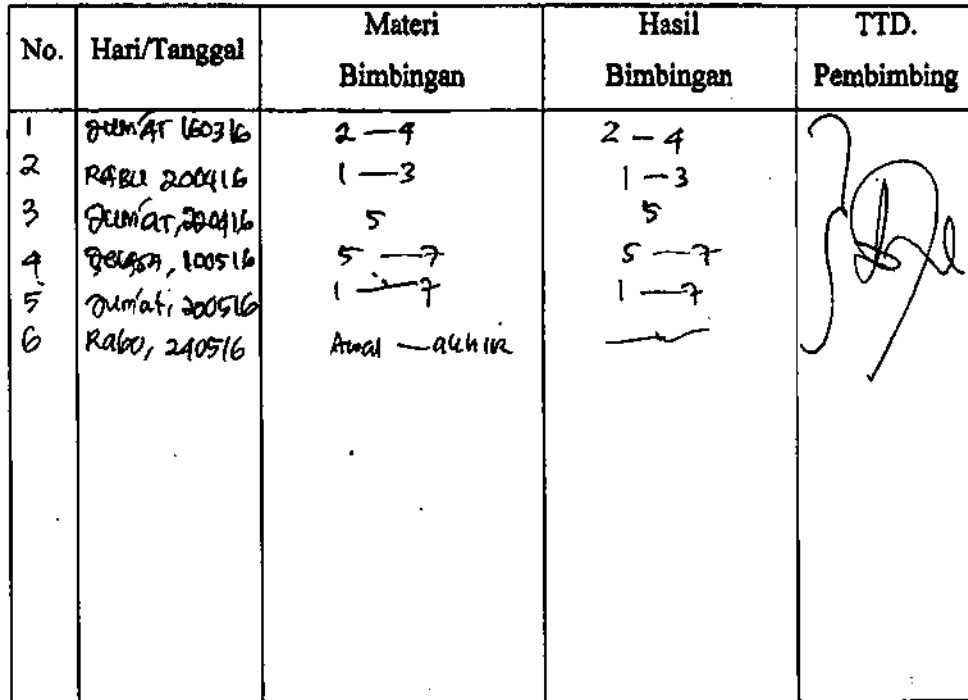 No. Hari/Tanggal Materi Bimbingan Hasil Bimbingan TTD. Pembimbing
1 Jum'AT 160316 2 — 4 2 — 4
2 RABU 200416 1 — 3 1 — 3
3 Jum'at, 220416 5 5
4 Selasa, 100516 5 — 7 5 — 7
5 Jum'at, 200516 1 — 7 1 — 7
6 Rabo, 240516 Awal — akhir —